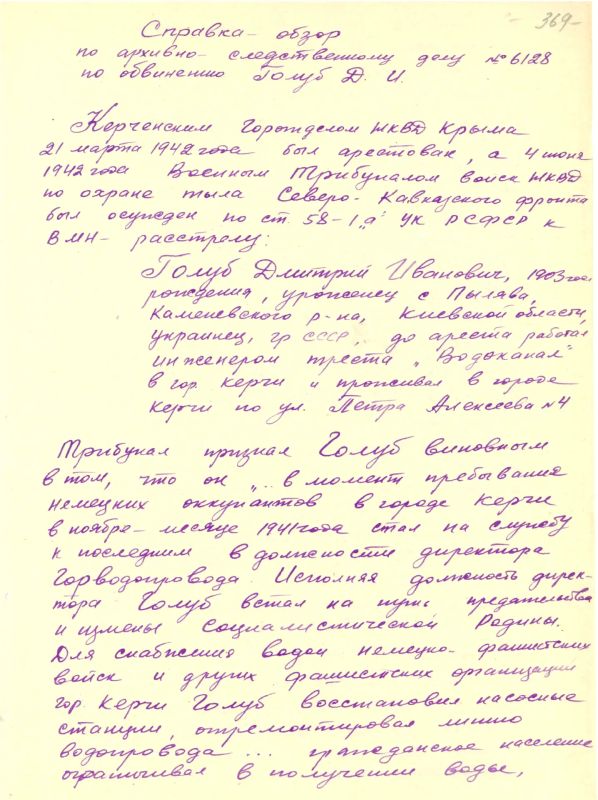 369-
Справка- обзор
по архивно- следственному делу №6128
по обвинению Голуб Д. И.
Керченским Горотделом НКВД Крыма
21 марта 1942 года был арестован, а 4 июня
1942 года Военным Трибуналом войск НКВД
по охране тыла Северо- Кавказского фронта
был осужден по ст. 58-1 „а" УК РСФСР к
ВМН- расстрелу:
Голуб Дмитрий Иванович, 1903 года
рождения, уроженец с Пылява,
Каменевского р-на, Киевской области,
украинец, гр СССР, до ареста работал
инженером треста „Водоканал"
в гор. Керчи и проживал в городе
Керчи по ул. Петра Алексеева №4
Трибунал признал Голуб виновным
в том, что он „... в момент пребывания
немецких оккупантов в городе Керчи
в ноябре- месяце 1941 года стал на службу
к последним в должности директора
Горводопровода. Исполняя должность дирек-
тора Голуб встал на путь предательства
и измены Социалистической Родины.
Для снабжения водой немецко- фашистских
войск и других фашистских организаций
гор. Керчи Голуб восстановил насосные
станции, отремонтировал линию
водопровода ... гражданское население
ограничивал в получении воды,